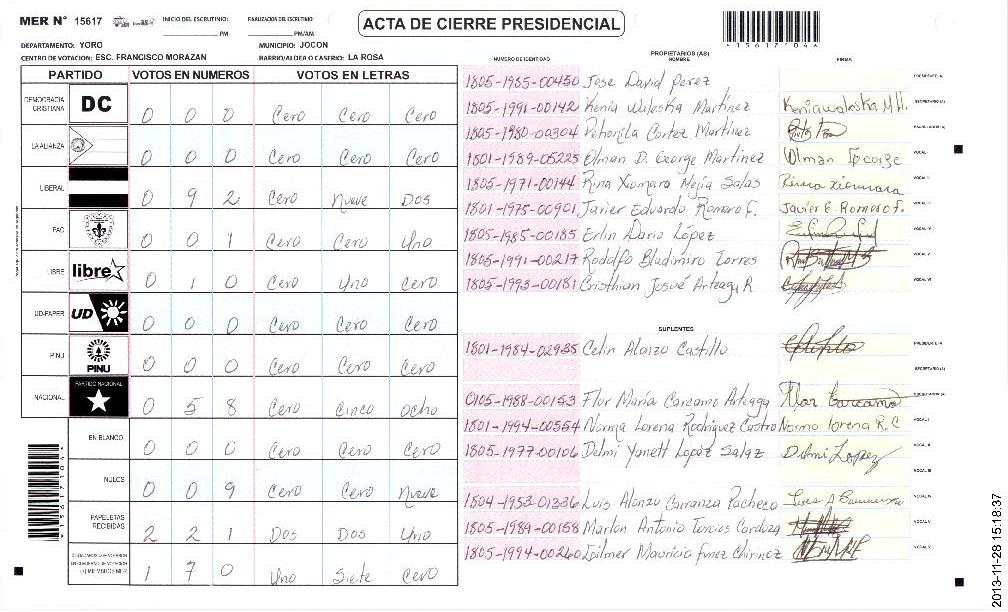 MER N° 15617
INICIO DEL ESCRUTINIO:
PM
FINALIZACION DEL ESCRUTINIO:
PM/AM
ACTA DE CIERRE PRESIDENCIAL
*156171044*
DEPARTAMENTO: YORO
MUNICIPIO: JOCON
CENTRO DE VOTACION: ESC. FRANCISCO MORAZAN
BARRIO/ALDEA O CASERIO: LA ROSA
PARTIDO VOTOS EN NUMEROS VOTOS EN LETRAS
DEMOCRACIA CRISTIANA DC 0 0 0 Cero Cero Cero
LA ALIANZA 0 0 0 Cero Cero Cero
LIBERAL 0 9 2 Cero Nueve Dos
PAC 0 0 1 Cero Cero Uno
LIBRE libre 0 1 0 Cero Uno Cero
UD-FAPER UD 0 0 0 Cero Cero Cero
PINU PINU 0 0 0 Cero Cero Cero
NACIONAL PARTIDO NACIONAL 0 5 8 Cero Cinco Ocho
EN BLANCO 0 0 0 Cero Cero Cero
NULOS 0 0 9 Cero Cero Nueve
PAPELETAS RECIBIDAS 2 2 1 Dos Dos Uno
CIUDADANOS QUE VOTARON EN CUADERNO DE VOTACION (+) MIEMBROS MER 1 7 0 Uno Siete Cero
NUMERO DE IDENTIDAD
PROPIETARIOS (AS)
NOMBRE
FIRMA
1805-1985-00450 Jose David Perez PRESIDENTE (A)
1805-1991-00142 Kenia Waleska Martinez Kenia waleska M.H. SECRETARIO (A)
1805-1980-00304 Petronila Cortez Martinez ESCRUTADOR (A)
1801-1989-05225 Olman D. George Martinez Olman George VOCAL I
1805-1971-00144 Rina Xiomara Mejia Salas Rina Xiomara VOCAL II
1801-1975-00901 Javier Eduardo Romero F. Javier E. Romero F. VOCAL III
1805-1985-00185 Erlin Dario López VOCAL IV
1805-1991-00217 Rodolfo Bladimiro Torres VOCAL V
1805-1993-00181 Cristhian Josué Arteaga R VOCAL VI
SUPLENTES
1801-1984-02935 Celin Alonzo Castillo PRESIDENTE (A)
SECRETARIO (A)
0105-1988-00153 Flor María Carcamo Arteaga Flor Carcamo ESCRUTADOR (A)
1801-1994-00554 Norma Lorena Rodriguez Castro Norma lorena R. C VOCAL I
1805-1977-00106 Delmi Yanett Lopez Salaz Delmi Lopez VOCAL II
VOCAL III
1804-1953-01336 Luis Alonzo Carranza Pacheco VOCAL IV
1805-1989-00158 Marlon Antonio Torcios Cardoza VOCAL V
1805-1994-00260 Funez VOCAL VI
2013-11-28 15:18:37